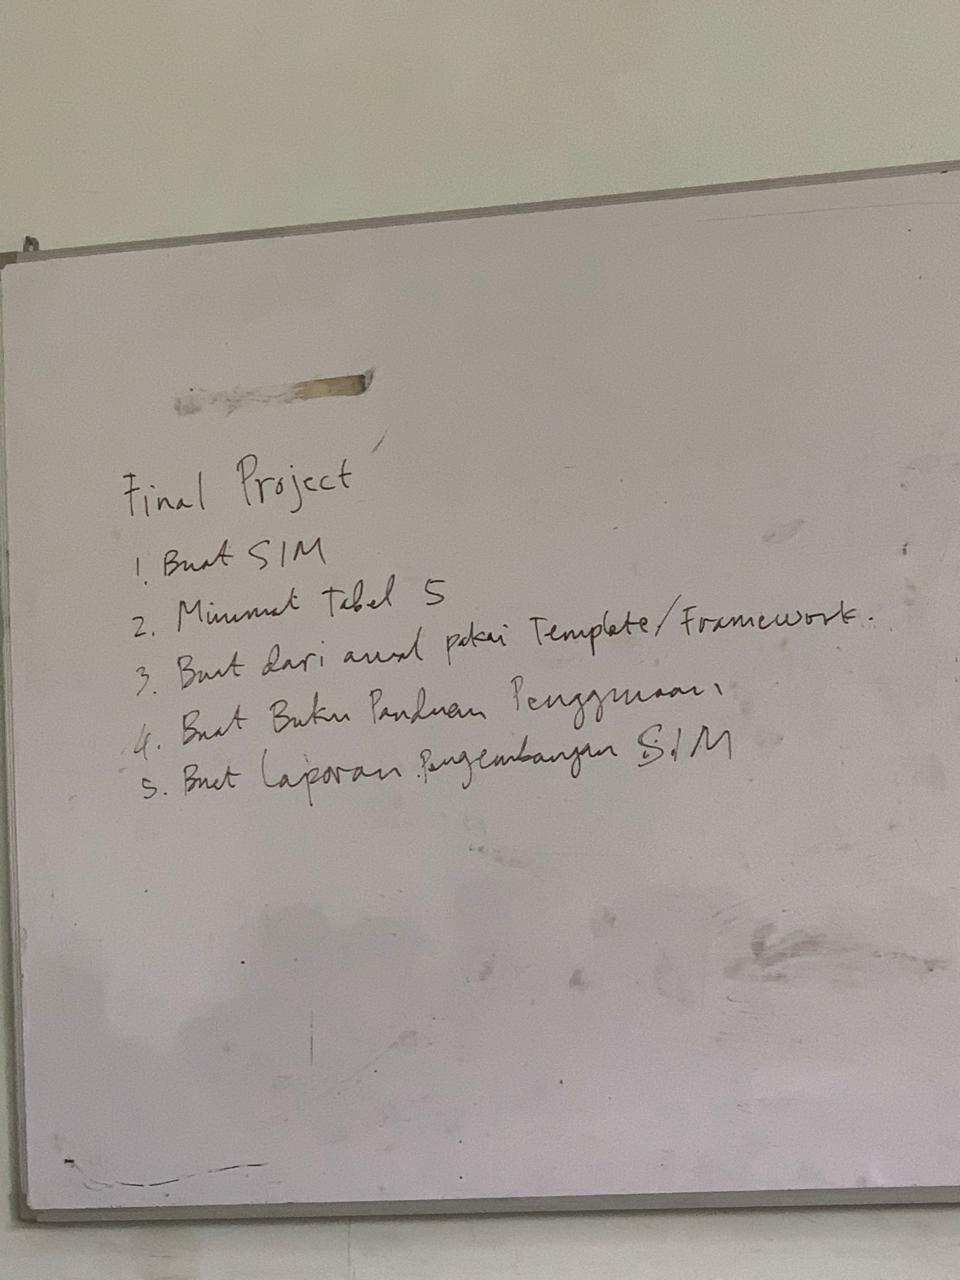 Final Project
1. Buat SIM
2. Minimal Tabel 5
3. Buat dari awal pakai Template/Framework.
4. Buat Buku Panduan Penggunaan.
5. Buat Laporan Pengembangan SIM